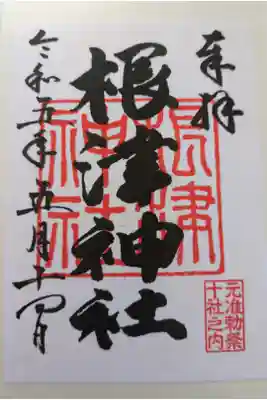 奉拝
元准勅祭
十社之内
根津神社
根津
神社
令和五年五月十四日